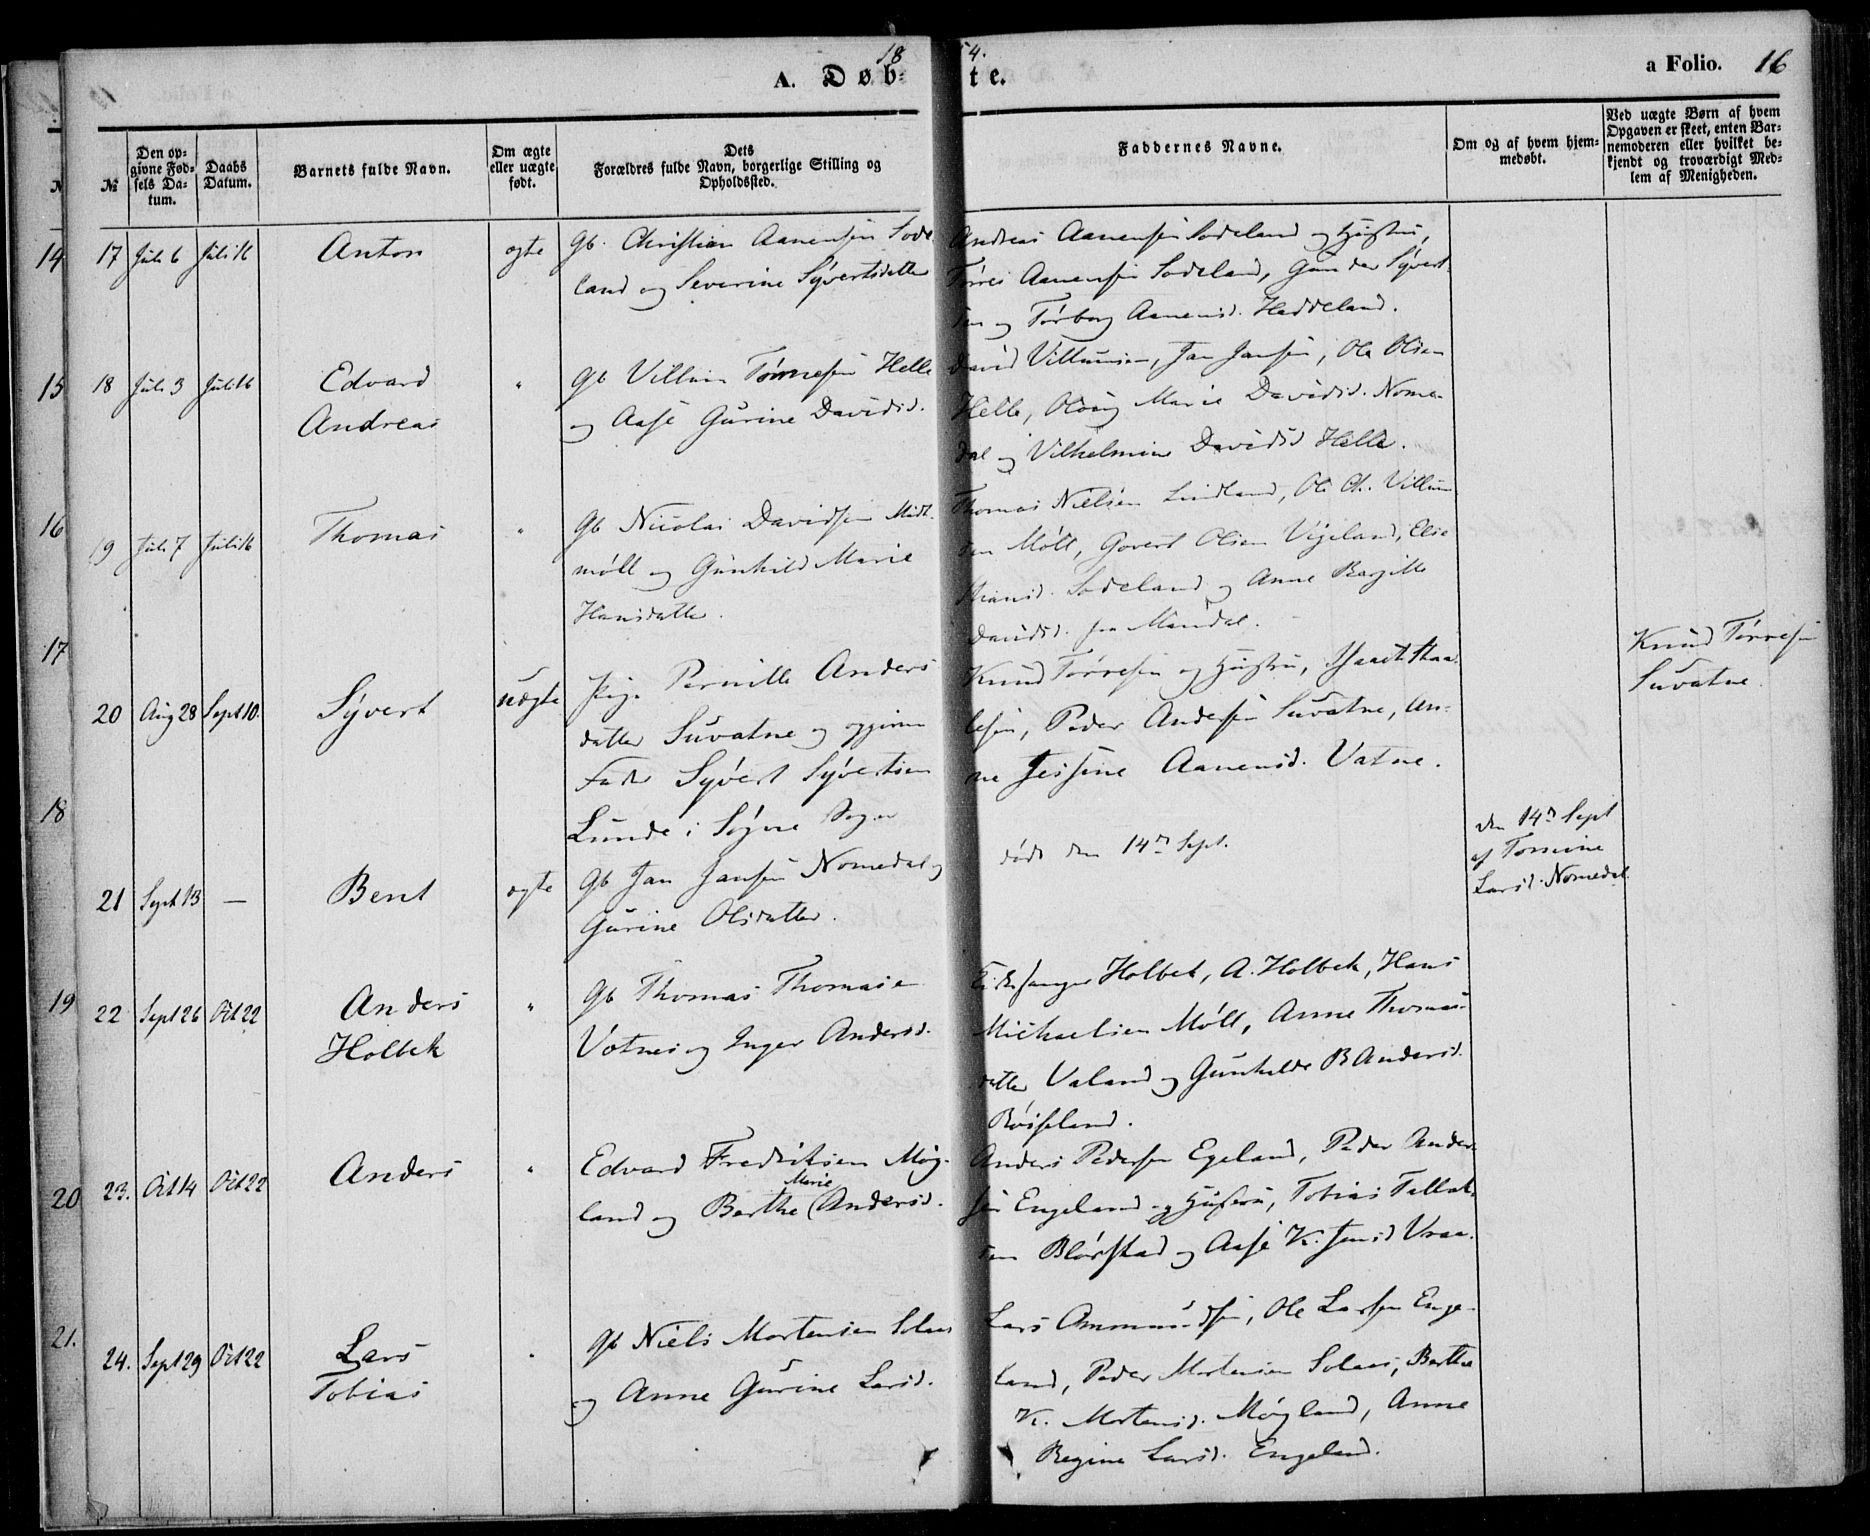 1854.
A. Døbte.
a Folio. 16
№
Den opgivne Fødsels Datum.
Daabs Datum.
Barnets fulde Navn.
Om ægte eller uægte født.
Dets Forældres fulde Navn, borgerlige Stilling og Opholdssted.
Faddernes Navne.
Om og af hvem hjemmedøbt.
Ved uægte Børn af hvem Opgaven er skeet, enten Barnemoderen eller hvilket bekjendt og troværdigt Medlem af Menigheden.
14
17 Juli 6 Juli 16 Anton ægte Gb. Christian Aanensen Sode
land og Severine Sÿvertsdatter
Andreas Aanensen Sodeland og Hustru,
Tørres Aanensen Sodeland, Gunder Sÿvert
sen og Tørborg Aanensd. Haddeland.
15
18 Juli 3 Juli 16 Edvard
Andreas
" Gb Villum Tørresen Helle
og Aase Gurine Davidsd.
David Villumsen, Jan Jansen, Ole Olsen
Helle, Marie Davidsd. Nome
dal og Vilhelmine Davidsd Helle.
16
19 Juli 7 Juli 16 Thomas " Gb Nicolai Davidsen Midt
møll og Gunhild Marie
Hansdatter.
Thomas Nielsen Lindland, Ole Ch. Villum
sen Møll, Govert Olsen Vigeland, Elie
Sodeland og Anne Bergitte
Davidsd. fra Mandal.
17
20 Aug 28 Sept 10. Sÿvert uægte Pige Pernille Anders
datter Suvatne og opgiven
Fader Sÿvert Sÿvertsen
Lunde i Søgne Sogn
Knud Tørresen og Hustru,
Peder Andersen Suvatne, An-
ne Aanensd. Vatne.
Knud Tørresen
Suvatne
18
21 Sept 13 — Bent ægte Gb Jan Jansen Nomedal og
Gurine Olsdatter.
døde den 14de Sept.
den 14de Sept
af Tomine
Larsd. Nomedal
19
22 Sept 26 Oct 22 Anders
Holbek
" Gb Thomas Thomasen
Votnes og Inger Andersd.
Kirkesanger Holbek, A. Holbek, Hans
Michaelsen Møll, Anne Thomas-
datter Valand og Gunhilde B Andersd.
Røiseland.
20
23. Oct 14 Oct 22 Anders " Edvard Fredriksen Møg-
land og Berthe Marie Andersd.
Anders Pedersen Egeland, Peder Ander-
sen Engeland og Hustru, Tobias Tallak-
sen Blørstad og Aase K. Jensd Vraa.
21.
24. Sept 29 Oct 22 Lars
Tobias
" Gb Niels Mortensen Solaas
og Anne Gurine Larsd.
Lars Ommundsen, Ole Larsen Enge-
land, Peder Mortensen Solaas, Berthe
K. Mortensd. Møgland, Anne
Regine Larsd. Engeland.